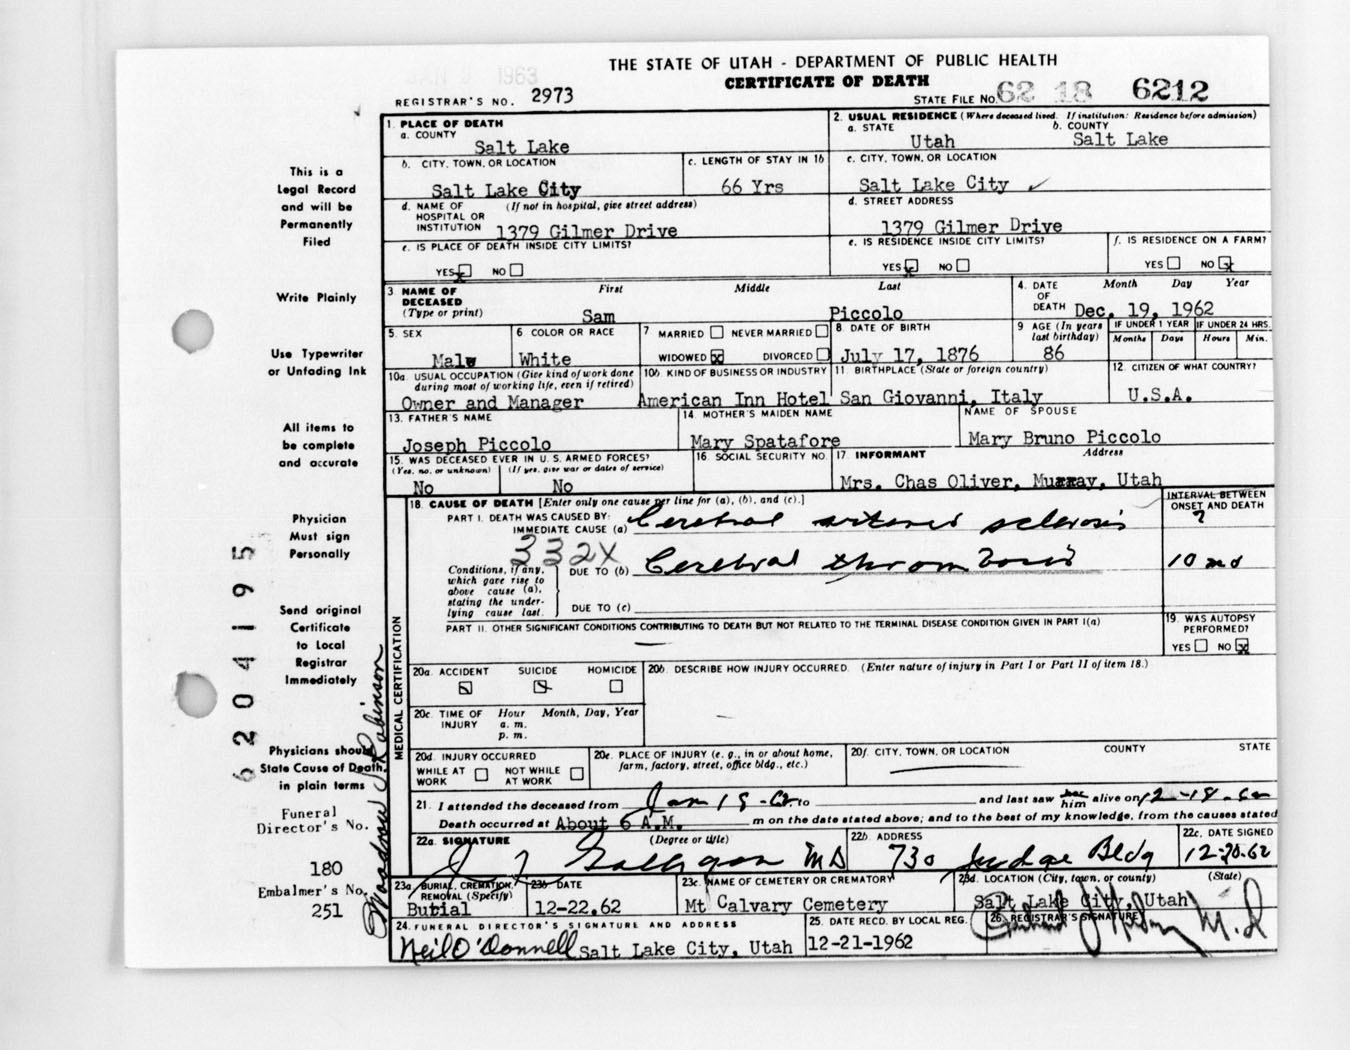 JAN 9 1963
THE STATE OF UTAH - DEPARTMENT OF PUBLIC HEALTH
CERTIFICATE OF DEATH
REGISTRAR'S NO. 2973
STATE FILE NO. 62 18 6212
This is a
Legal Record
and will be
Permanently
Filed
Write Plainly
Use Typewriter
or Unfading Ink
All items to
be complete
and accurate
Physician
Must sign
Personally
Send original
Certificate
to Local
Registrar
Immediately
Physicians should
State Cause of Death
in plain terms
Funeral
Director's No.
180
Embalmer's No.
251
6204195
Robinson
1. PLACE OF DEATH
a. COUNTY
Salt Lake
2. USUAL RESIDENCE (Where deceased lived. If institution: Residence before admission)
a. STATE b. COUNTY
Utah Salt Lake
b. CITY, TOWN, OR LOCATION
Salt Lake City
c. LENGTH OF STAY IN 1b
66 Yrs
c. CITY, TOWN, OR LOCATION
Salt Lake City ✓
d. NAME OF (If not in hospital, give street address)
HOSPITAL OR
INSTITUTION 1379 Gilmer Drive
d. STREET ADDRESS
1379 Gilmer Drive
e. IS PLACE OF DEATH INSIDE CITY LIMITS?
YES x NO
e. IS RESIDENCE INSIDE CITY LIMITS?
YES x NO
f. IS RESIDENCE ON A FARM?
YES NO x
3 NAME OF
DECEASED
(Type or print)
First Middle Last
Sam Piccolo
4. DATE
OF
DEATH
Month Day Year
Dec. 19, 1962
5. SEX
Male
6. COLOR OR RACE
White
7 MARRIED NEVER MARRIED
WIDOWED x DIVORCED
8. DATE OF BIRTH
July 17, 1876
9 AGE (In years
last birthday)
86
IF UNDER 1 YEAR IF UNDER 24 HRS.
Months Days Hours Min.
10a. USUAL OCCUPATION (Give kind of work done
during most of working life, even if retired)
Owner and Manager
10b. KIND OF BUSINESS OR INDUSTRY
American Inn Hotel
11. BIRTHPLACE (State or foreign country)
San Giovanni, Italy
12. CITIZEN OF WHAT COUNTRY?
U.S.A.
13. FATHER'S NAME
Joseph Piccolo
14. MOTHER'S MAIDEN NAME
Mary Spatafore
NAME OF SPOUSE
Mary Bruno Piccolo
15. WAS DECEASED EVER IN U.S. ARMED FORCES?
(Yes, no, or unknown) (If yes, give war or dates of service)
No No
16. SOCIAL SECURITY NO.
17. INFORMANT Address
Mrs. Chas Oliver, Murray, Utah
MEDICAL CERTIFICATION
18. CAUSE OF DEATH [Enter only one cause per line for (a), (b), and (c).]
PART I. DEATH WAS CAUSED BY:
IMMEDIATE CAUSE (a) Cerebral arterio sclerosis
INTERVAL BETWEEN
ONSET AND DEATH
?
332X
Conditions, if any,
which gave rise to
above cause (a),
stating the under-
lying cause last.
DUE TO (b) Cerebral thrombosis
10 mo
DUE TO (c)
PART II. OTHER SIGNIFICANT CONDITIONS CONTRIBUTING TO DEATH BUT NOT RELATED TO THE TERMINAL DISEASE CONDITION GIVEN IN PART I(a)
19. WAS AUTOPSY
PERFORMED?
YES NO x
20a. ACCIDENT SUICIDE HOMICIDE
20b. DESCRIBE HOW INJURY OCCURRED. (Enter nature of injury in Part I or Part II of item 18.)
20c. TIME OF
INJURY
Hour Month, Day, Year
a. m.
p. m.
20d. INJURY OCCURRED
WHILE AT
WORK
NOT WHILE
AT WORK
20e. PLACE OF INJURY (e. g., in or about home,
farm, factory, street, office bldg., etc.)
20f. CITY, TOWN, OR LOCATION COUNTY STATE
21. I attended the deceased from Jan 19-62 to and last saw him alive on 12-18-62
Death occurred at About 6 A.M. m on the date stated above; and to the best of my knowledge, from the causes stated
22a. SIGNATURE (Degree or title)
MD
22b. ADDRESS
730 Judge Bldg
22c. DATE SIGNED
12-20-62
23a. BURIAL, CREMATION,
REMOVAL (Specify)
Burial
23b DATE
12-22.62
23c. NAME OF CEMETERY OR CREMATORY
Mt Calvary Cemetery
23d. LOCATION (City, town, or county) (State)
Salt Lake City, Utah
24. FUNERAL DIRECTOR'S SIGNATURE AND ADDRESS
Neil O'Donnell Salt Lake City, Utah
25. DATE RECD. BY LOCAL REG.
12-21-1962
26. REGISTRAR'S SIGNATURE
M.D